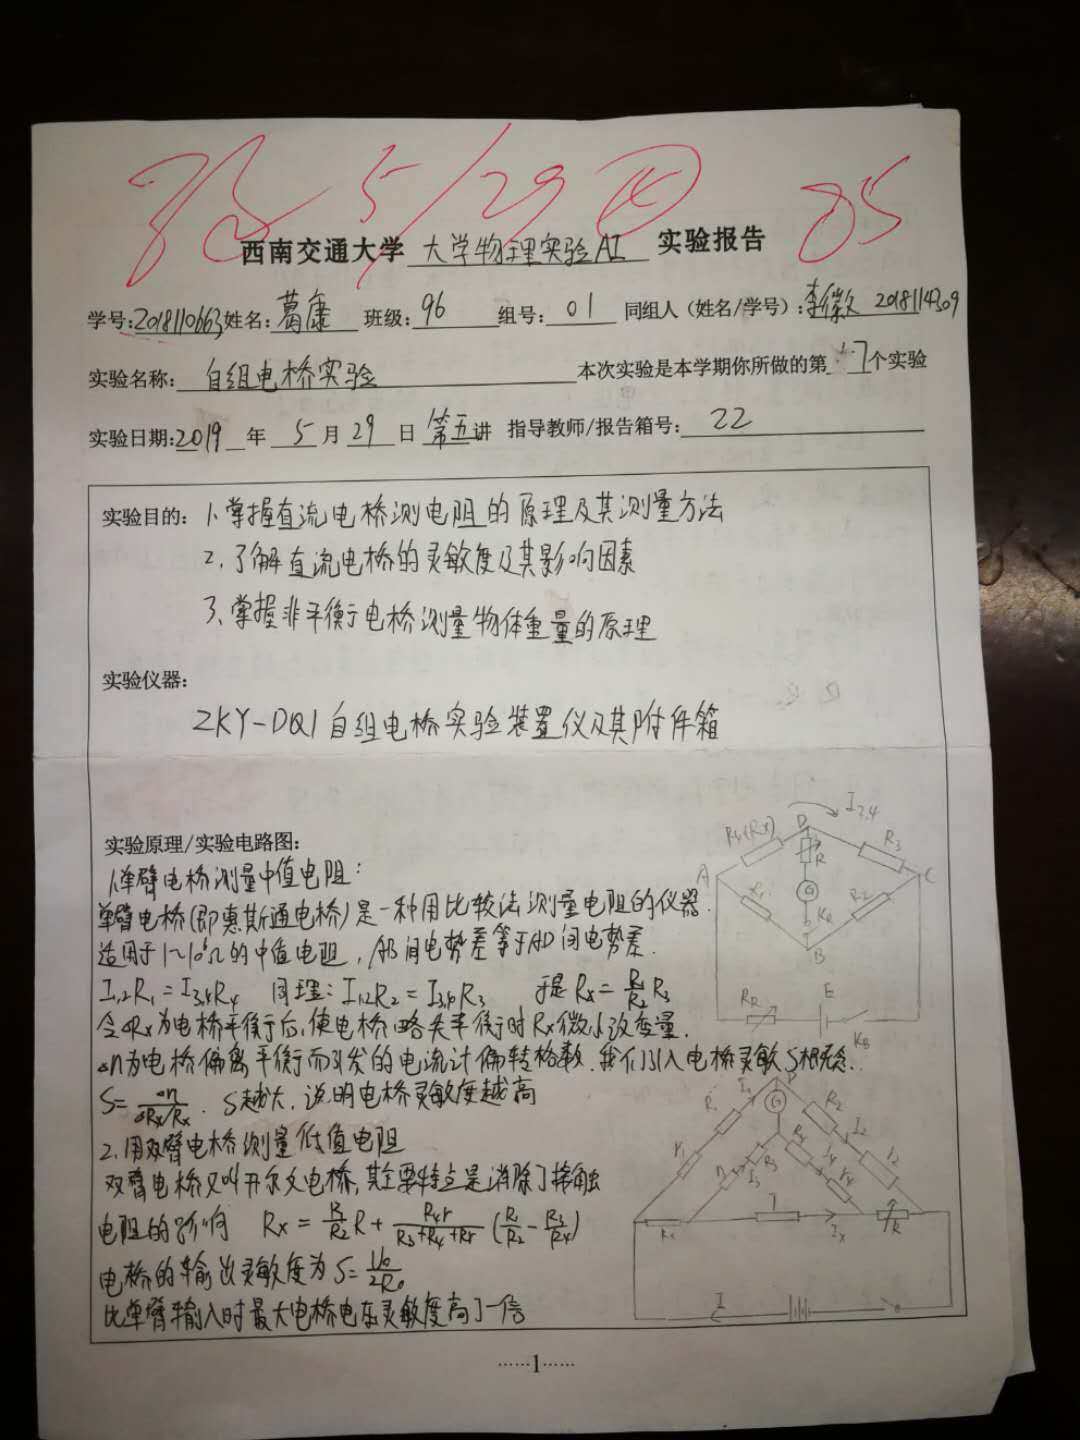 5/29 85
西南交通大学 大学物理实验AI 实验报告
学号:2018110663 姓名:葛康 班级:96 组号:01 同组人（姓名/学号）:李徽 2018114309
实验名称: 自组电桥实验 本次实验是本学期你所做的第 7 个实验
实验日期:2019 年 5 月 29 日 第五讲 指导教师/报告箱号: 22
实验目的: 1.掌握直流电桥测电阻的原理及其测量方法
2.了解直流电桥的灵敏度及其影响因素
3、掌握非平衡电桥测量物体重量的原理
实验仪器:
ZKY-DQ1自组电桥实验装置仪及其附件箱
实验原理/实验电路图:
1.单臂电桥测量中值电阻:
单臂电桥(即惠斯通电桥)是一种用比较法测量电阻的仪器.
适用于1~10⁶Ω的中值电阻, AB间电势差等于AD间电势差.
I₁,₂R₁=I₃,₄R₄ 同理: I₁,₂R₂=I₃,₄R₃ 于是 Rx=R₁/R₂ R₃
令ΔRx为电桥平衡后,使电桥略失平衡时Rx微小改变量.
Δn为电桥偏离平衡而引发的电流计偏转格数.我们引入电桥灵敏S概念.
S=Δn/(ΔRx/Rx). S越大,说明电桥灵敏度越高
2.用双臂电桥测量低值电阻
双臂电桥又叫开尔文电桥,其主要特点是消除了接触
电阻的影响 Rx=R₁/R₂ R+R₄r/(R₃+R₄+Rr)(R₁/R₂-R₃/R₄)
电桥的输出灵敏度为S=U₀/2R₀
比单臂输入时最大电桥电压灵敏度高了一倍
R₄(Rx) D I₃,₄ R₃
A R G C
R₁ R₂
B
E
K_B
P
G R₂
R₃
Rx Ix R
I
……1……